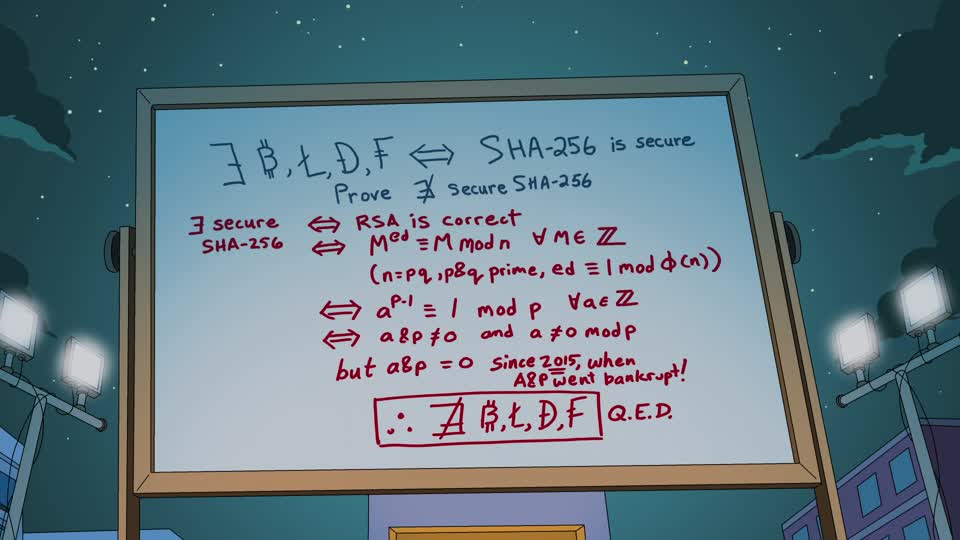 ∃ ₿, Ł, Đ, ₣ ⟺ SHA-256 is secure
Prove ∄ secure SHA-256
∃ secure ⟺ RSA is correct
SHA-256 ⟺ M^ed ≡ M mod n ∀ M ∈ ℤ
(n=pq, p&q prime, ed ≡ 1 mod φ(n))
⟺ a^p-1 ≡ 1 mod p ∀a ∈ ℤ
⟺ a&p ≠ 0 and a ≠ 0 mod p
but a&p = 0 since 2015, when
A&P went bankrupt!
∴ ∄ ₿, Ł, Đ, ₣ Q.E.D.